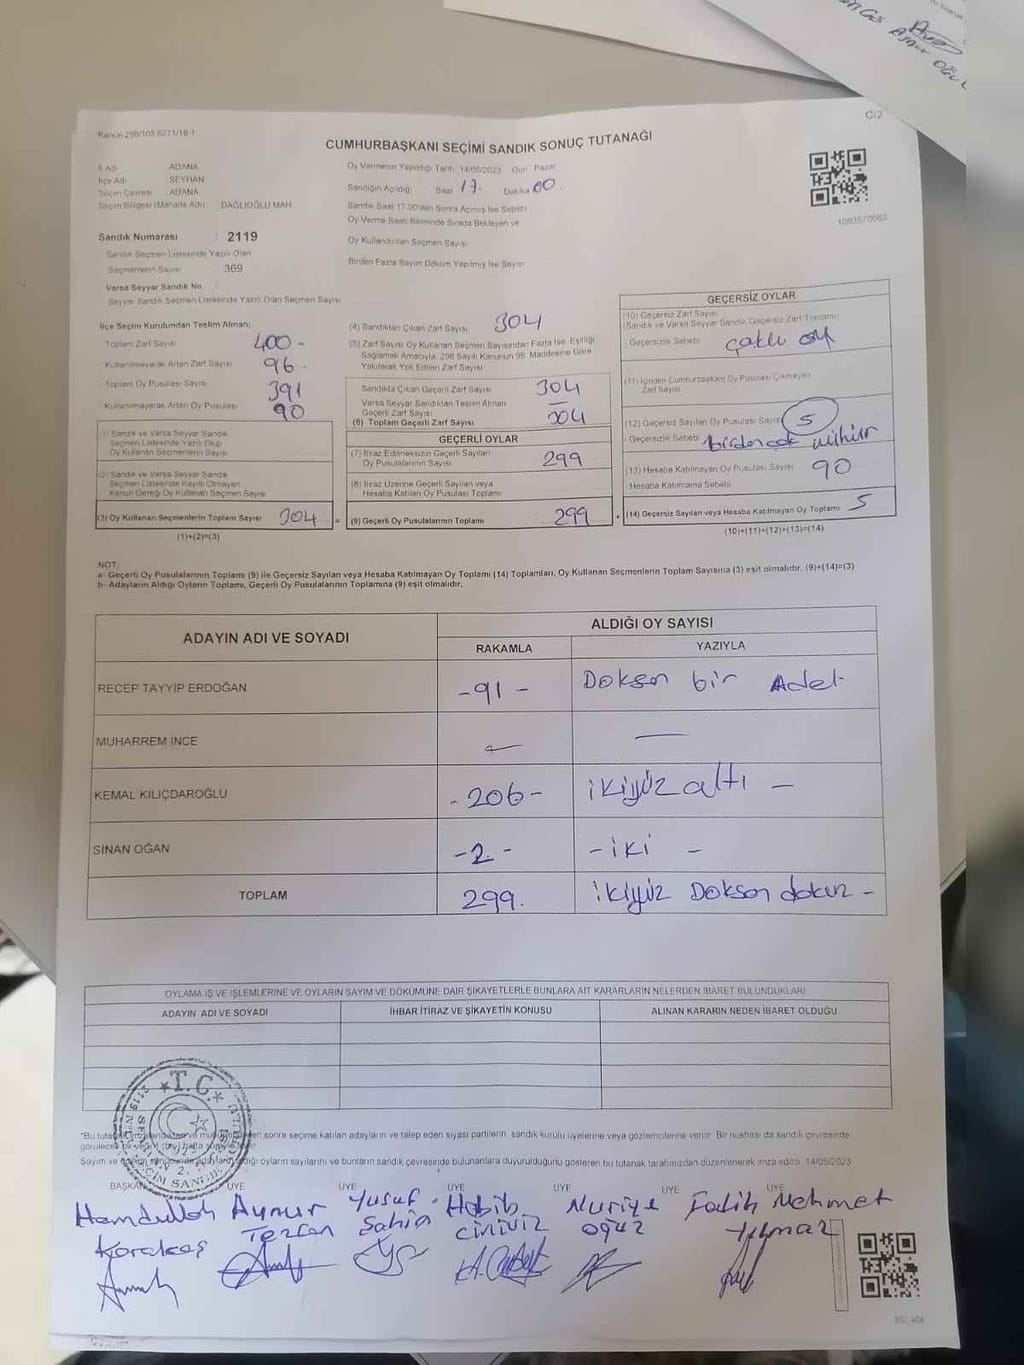 Kanun 298/105 6271/16-1
C/2
CUMHURBAŞKANI SEÇİMİ SANDIK SONUÇ TUTANAĞI
İl Adı ADANA
İlçe Adı SEYHAN
Seçim Çevresi : ADANA
Seçim Bölgesi (Mahalle Adı) DAĞLIOĞLU MAH.
Sandık Numarası : 2119
Sandık Seçmen Listesinde Yazılı Olan
Seçmenlerin Sayısı : 369
Varsa Seyyar Sandık No
Seyyar Sandık Seçmen Listesinde Yazılı Olan Seçmen Sayısı
Oy Vermenin Yapıldığı Tarih: 14/05/2023 Gün Pazar
Sandığın Açıldığı Saat 17. Dakika 00.
Sandık Saat 17.00'den Sonra Açılmış İse Sebebi
Oy Verme Saati Bitiminde Sırada Bekleyen ve
Oy Kullandırılan Seçmen Sayısı
Birden Fazla Sayım Döküm Yapılmış İse Sayısı
1093570663
İlçe Seçim Kurulundan Teslim Alınan;
Toplam Zarf Sayısı 400 -
Kullanılmayarak Artan Zarf Sayısı 96 -
Toplam Oy Pusulası Sayısı 391
Kullanılmayarak Artan Oy Pusulası 90
(1) Sandık ve Varsa Seyyar Sandık
Seçmen Listesinde Yazılı Olup
Oy Kullanan Seçmenlerin Sayısı
(2) Sandık ve Varsa Seyyar Sandık
Seçmen Listesinde Kayıtlı Olmayan
Kanun Gereği Oy Kullanan Seçmen Sayısı
(3) Oy Kullanan Seçmenlerin Toplam Sayısı 304 =
(1)+(2)=(3)
(4) Sandıktan Çıkan Zarf Sayısı 304
(5) Zarf Sayısı Oy Kullanan Seçmen Sayısından Fazla İse, Eşitliği
Sağlamak Amacıyla, 298 Sayılı Kanunun 98. Maddesine Göre
Yakılarak Yok Edilen Zarf Sayısı
Sandıkta Çıkan Geçerli Zarf Sayısı 304
Varsa Seyyar Sandıktan Teslim Alınan
Geçerli Zarf Sayısı —
(6) Toplam Geçerli Zarf Sayısı 304
GEÇERLİ OYLAR
(7) İtiraz Edilmeksizin Geçerli Sayılan
Oy Pusulalarının Sayısı 299
(8) İtiraz Üzerine Geçerli Sayılan veya
Hesaba Katılan Oy Pusulası Toplamı
(9) Geçerli Oy Pusulalarının Toplamı 299 +
GEÇERSİZ OYLAR
(10) Geçersiz Zarf Sayısı
(Sandık ve Varsa Seyyar Sandık Geçersiz Zarf Toplamı)
Geçersizlik Sebebi
oy
(11) İçinden Cumhurbaşkanı Oy Pusulası Çıkmayan
Zarf Sayısı
(12) Geçersiz Sayılan Oy Pusulası Sayısı 5
Geçersizlik Sebebi birden çok mühür
(13) Hesaba Katılmayan Oy Pusulası Sayısı 90
Hesaba Katılmama Sebebi
(14) Geçersiz Sayılan veya Hesaba Katılmayan Oy Toplamı 5
(10)+(11)+(12)+(13)=(14)
NOT:
a- Geçerli Oy Pusulalarının Toplamı (9) ile Geçersiz Sayılan veya Hesaba Katılmayan Oy Toplamı (14) Toplamları, Oy Kullanan Seçmenlerin Toplam Sayısına (3) eşit olmalıdır. (9)+(14)=(3)
b- Adayların Aldığı Oyların Toplamı, Geçerli Oy Pusulalarının Toplamına (9) eşit olmalıdır.
ADAYIN ADI VE SOYADI ALDIĞI OY SAYISI
RAKAMLA YAZIYLA
RECEP TAYYİP ERDOĞAN -91- Doksan bir Adet-
MUHARREM İNCE — —
KEMAL KILIÇDAROĞLU -206- ikiyüz altı —
SİNAN OĞAN -2- -iki -
TOPLAM 299. ikiyüz Doksan dokuz -
OYLAMA İŞ VE İŞLEMLERİNE VE OYLARIN SAYIM VE DÖKÜMÜNE DAİR ŞİKAYETLERLE BUNLARA AİT KARARLARIN NELERDEN İBARET BULUNDUKLARI
ADAYIN ADI VE SOYADI İHBAR İTİRAZ VE ŞİKAYETİN KONUSU ALINAN KARARIN NEDEN İBARET OLDUĞU
T.C.
sonra seçime katılan adayların ve talep eden siyasi partilerin sandık kurulu üyelerine veya gözlemcilerine verilir. Bir nüshası da sandık çevresinde
Sayım ve oyların sayılarını ve bunların sandık çevresinde bulunanlara duyurulduğunu gösteren bu tutanak tarafımızdan düzenlenerek imza edildi. 14/05/2023
BAŞKAN ÜYE ÜYE ÜYE ÜYE ÜYE ÜYE
Hamdullah Aynur Yusuf Habib Nuriye Fatih Mehmet
Karakaş Tezcan Şahin Ciniviz Oğuz Yılmaz